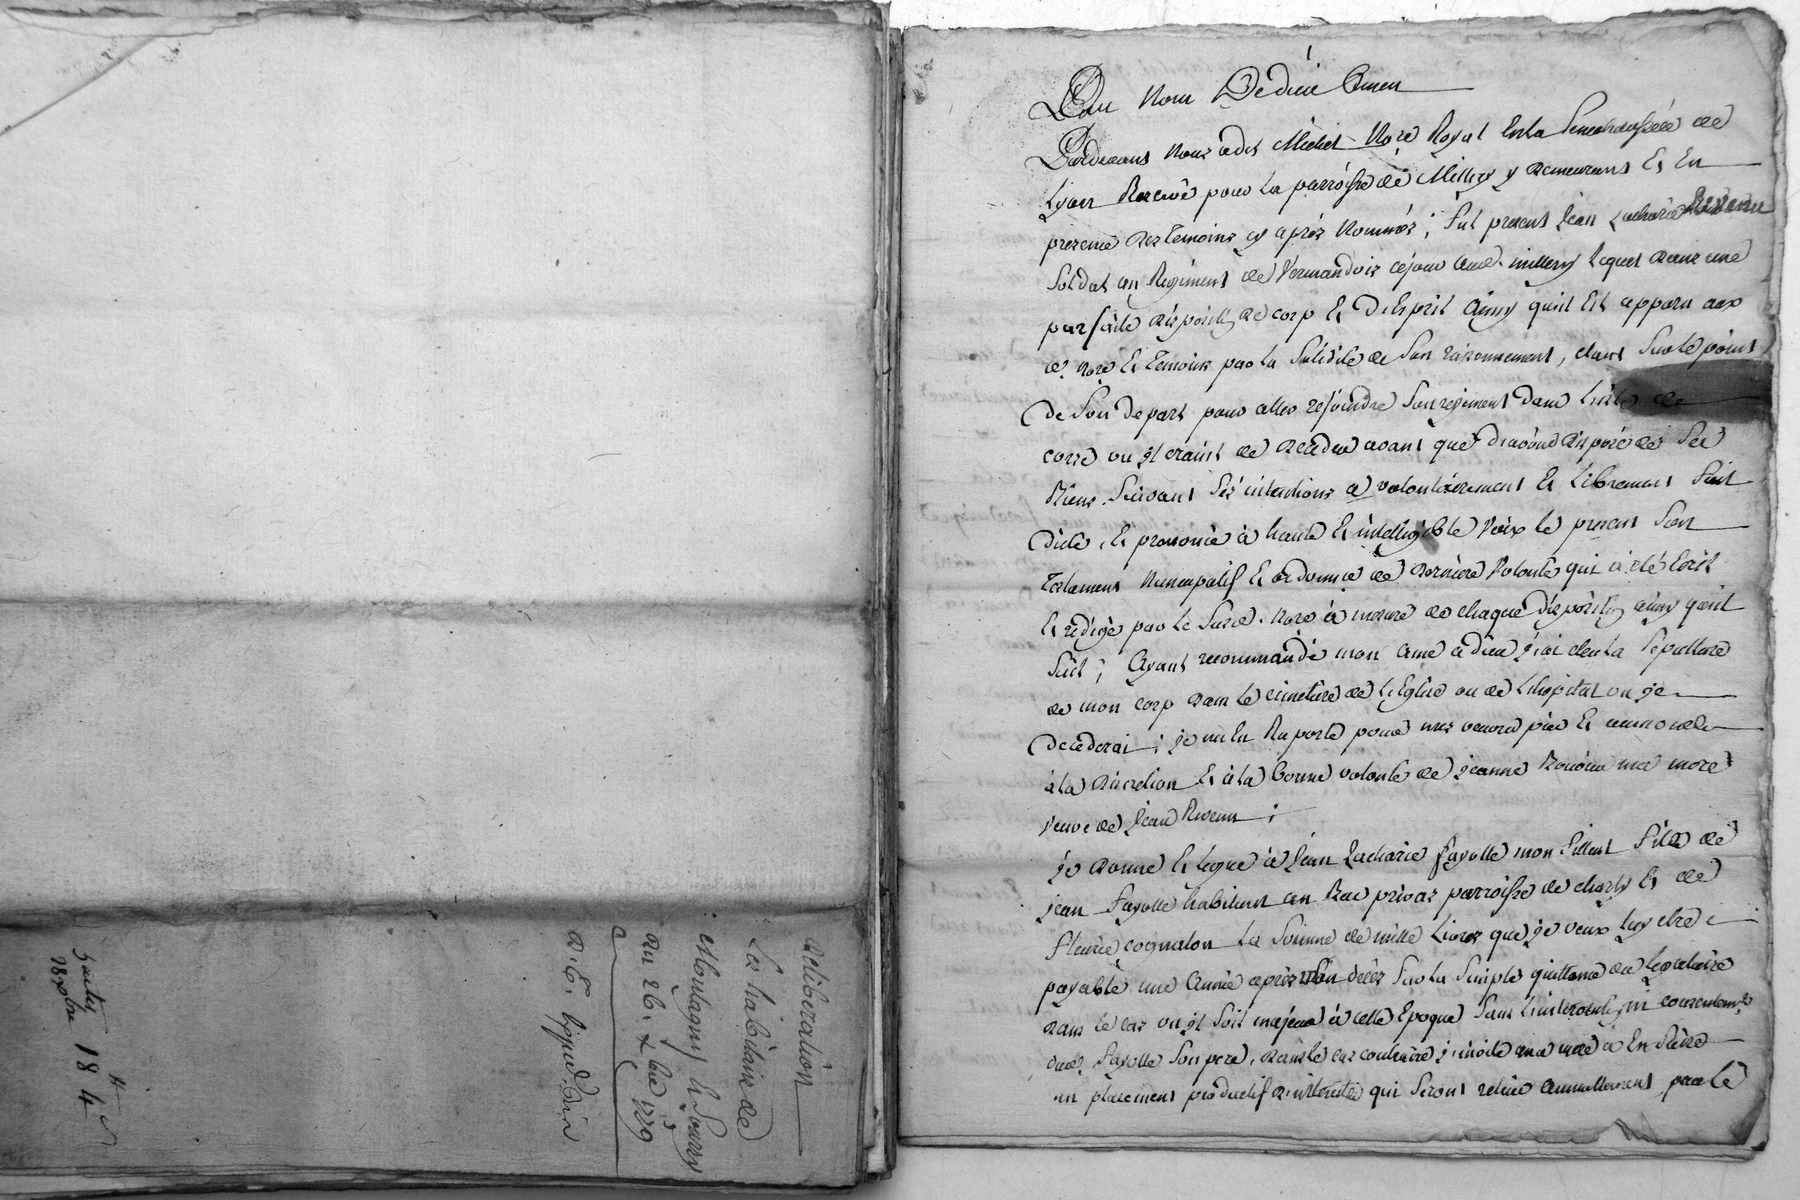 Délibération
Les habitans de
Montagny le Sourzy
du 26. xbre 1779
Au Nom De dieu Amen
Pardevant Nous André Michel Nore Royal En la Senechaussée de
Lyon Reservé pour la parroisse de Millery y demeurant Et En
presence des temoins cy après Nommés ; fut present Jean Zacharie Revenu
Soldat au Regiment de Vermandois cejour aud. millery lequel dans une
parfaite disposition de corp Et D'Esprit Ainsy quil Est apparu aux
d. Nore Et temoins par la Solidité de Son raisonnement, etant Sur le point
de Son depart pour aller rejoindre Son regiment dans L'isle de
corse ou il craint de deceder avant que d'avoir disposé de Ses
Biens Suivant Ses intentions a volontairement Et Librement Fait
dicté, Et prononcé à haute Et intelligible Voix le present Son
testament Nuncupatif Et ordonnance de derniere Volonté qui à été Ecrit
Et redigé par le Susd. Nore à mesure de chaque disposition ainsy quil
Suit ; Ayant recommandé mon ame à dieu j'ai eleu la Sepulture
de mon corp dans le cimetiere de L'Eglise ou de L'hopital ou je
decederai ; je m'En Raporte pour mes oeuvres pies Et aumones
à la discretion Et à la bonne volonté de jeanne ma mere
veuve de Jean Revenu ;
je donne Et legue à Jean Zacharie Fayolle mon Filleul Fils de
jean Fayolle habitant au Bas privas parroisse de charly Et de
Fleurie cognalon La Somme de mille Livres que je veux luy etre
payable une Année après mon decès Sur la Simple quittance du legataire
dans le cas ou il Soit majeur à cette Epoque Sans L'intervention ni consentement
dud. Fayolle Son pere, dans le cas contraire j'invite ma mere à En Faire
un placement productif d'interets qui Seront retiré annuellement par le